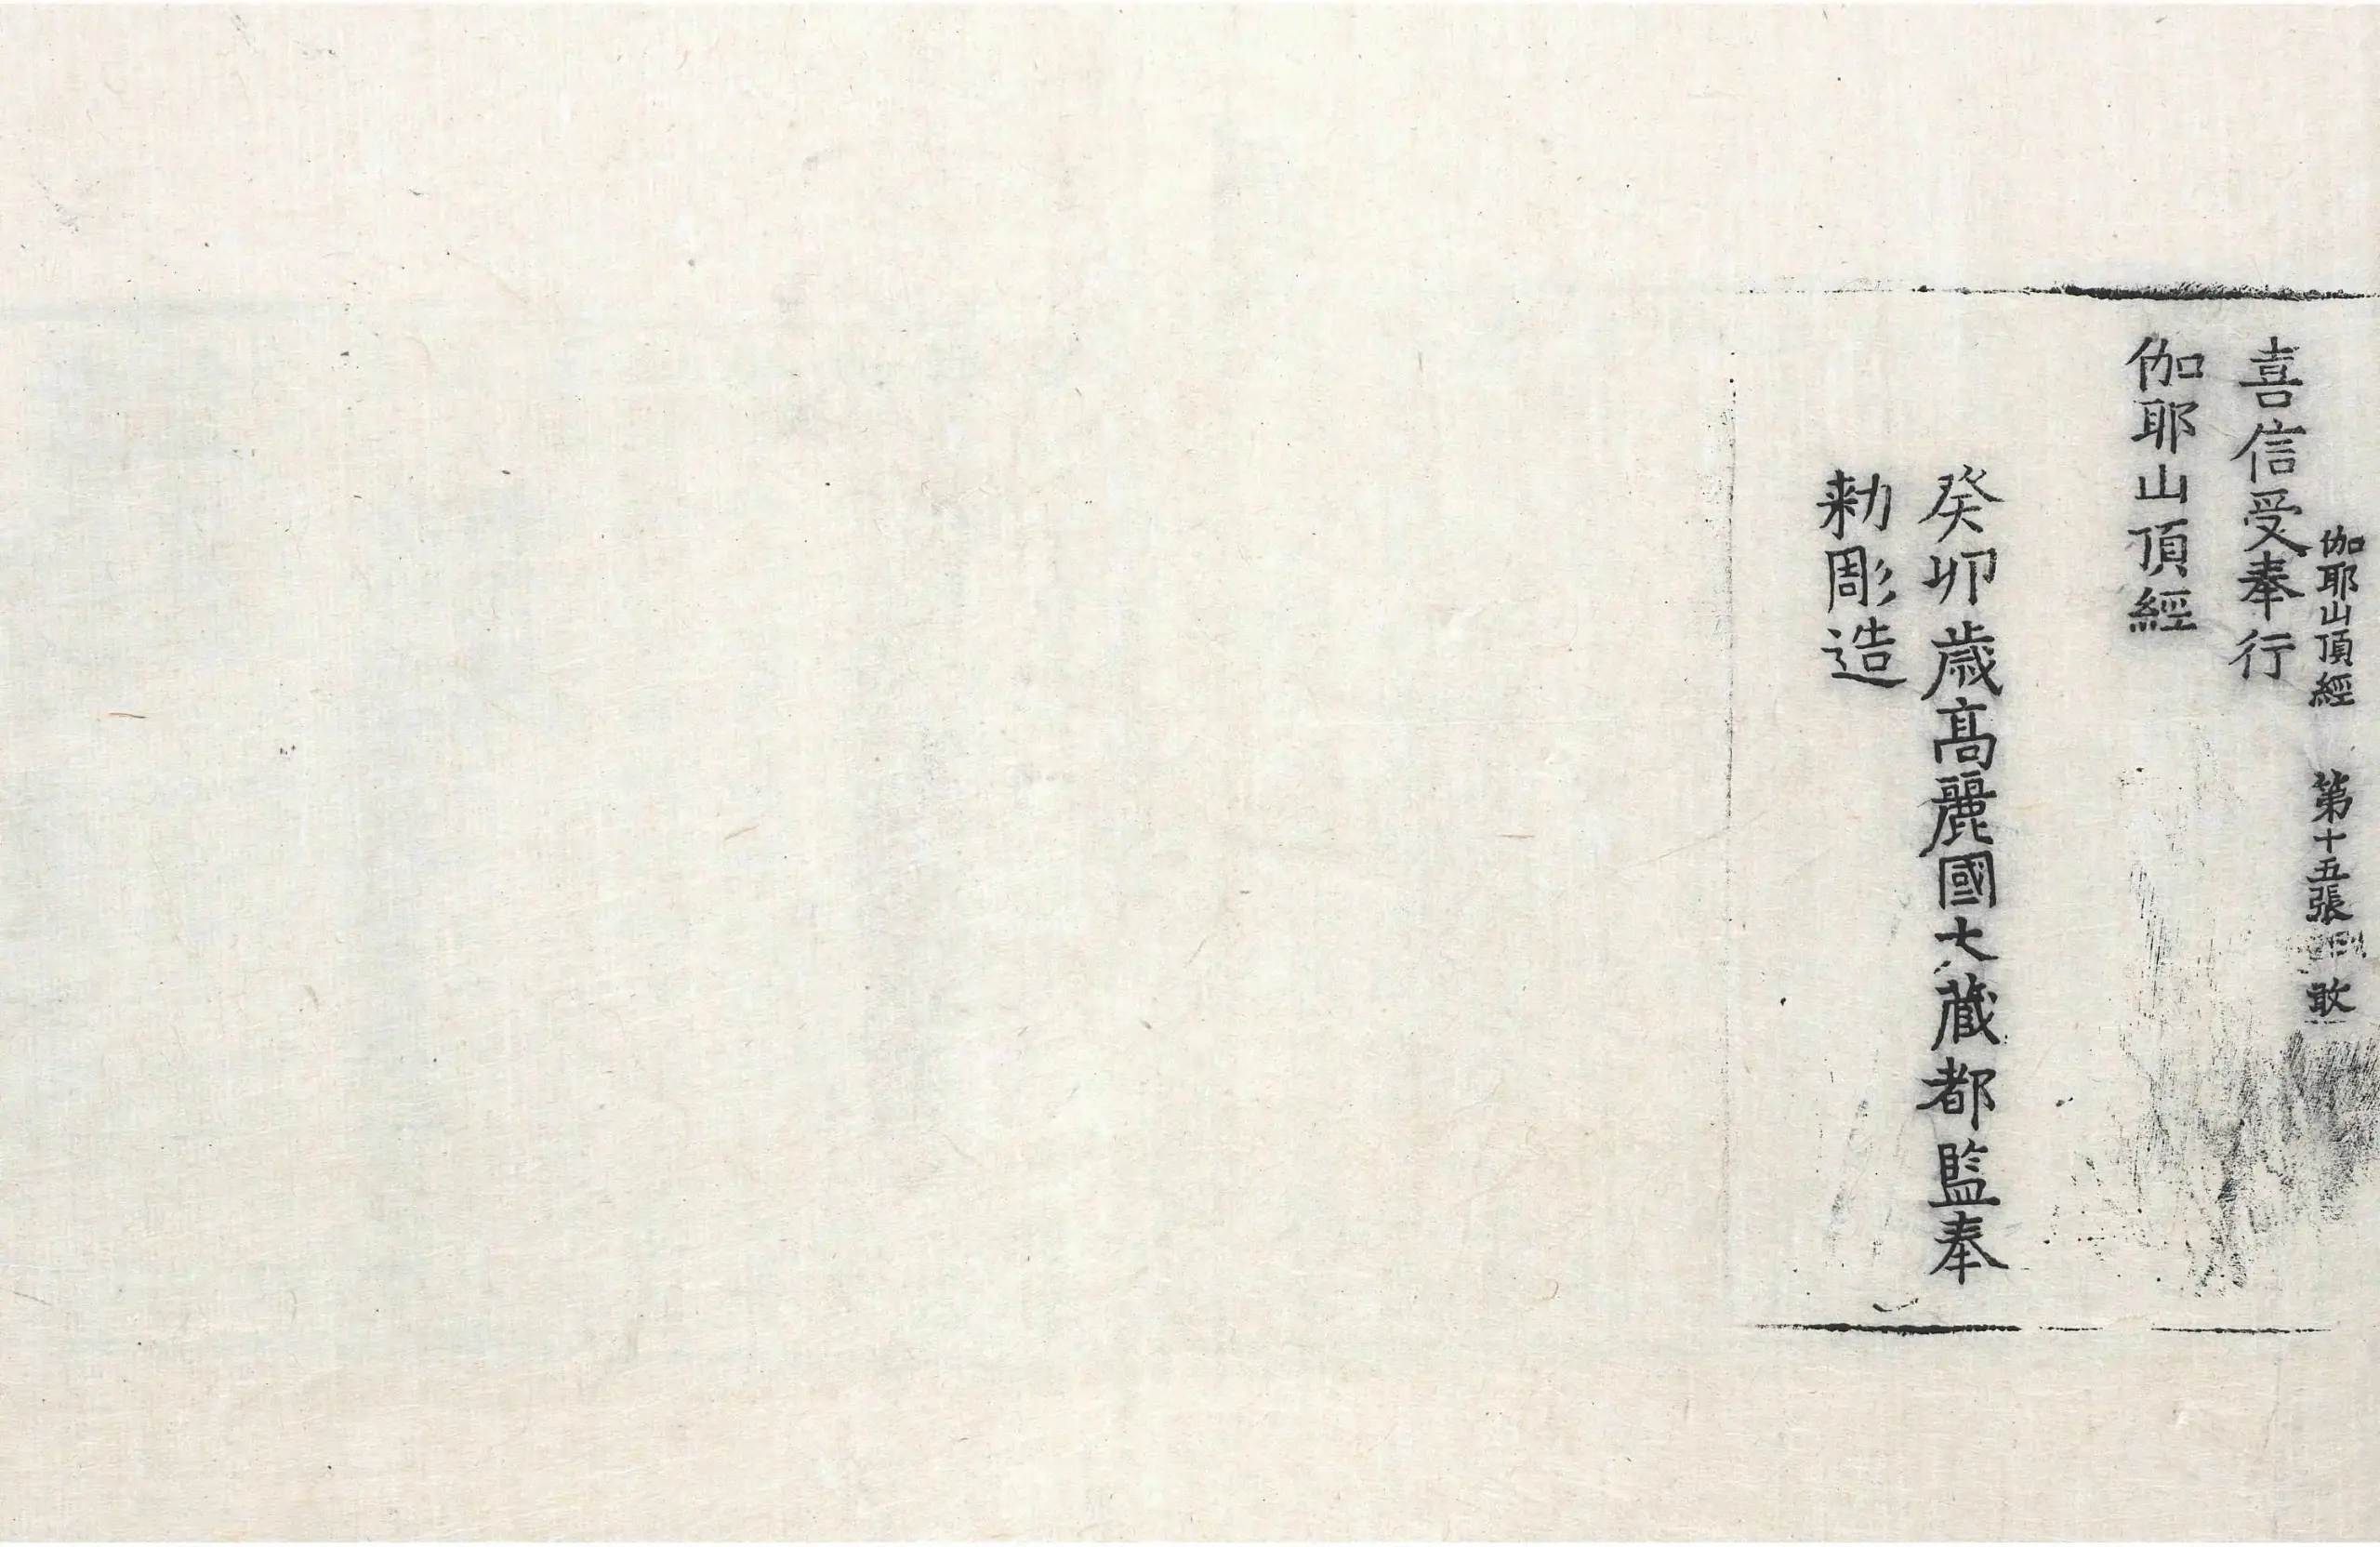 伽耶山頂經 第十五張 敢
喜信受奉行
伽耶山頂經
癸卯歲高麗國大藏都監奉
勅彫造